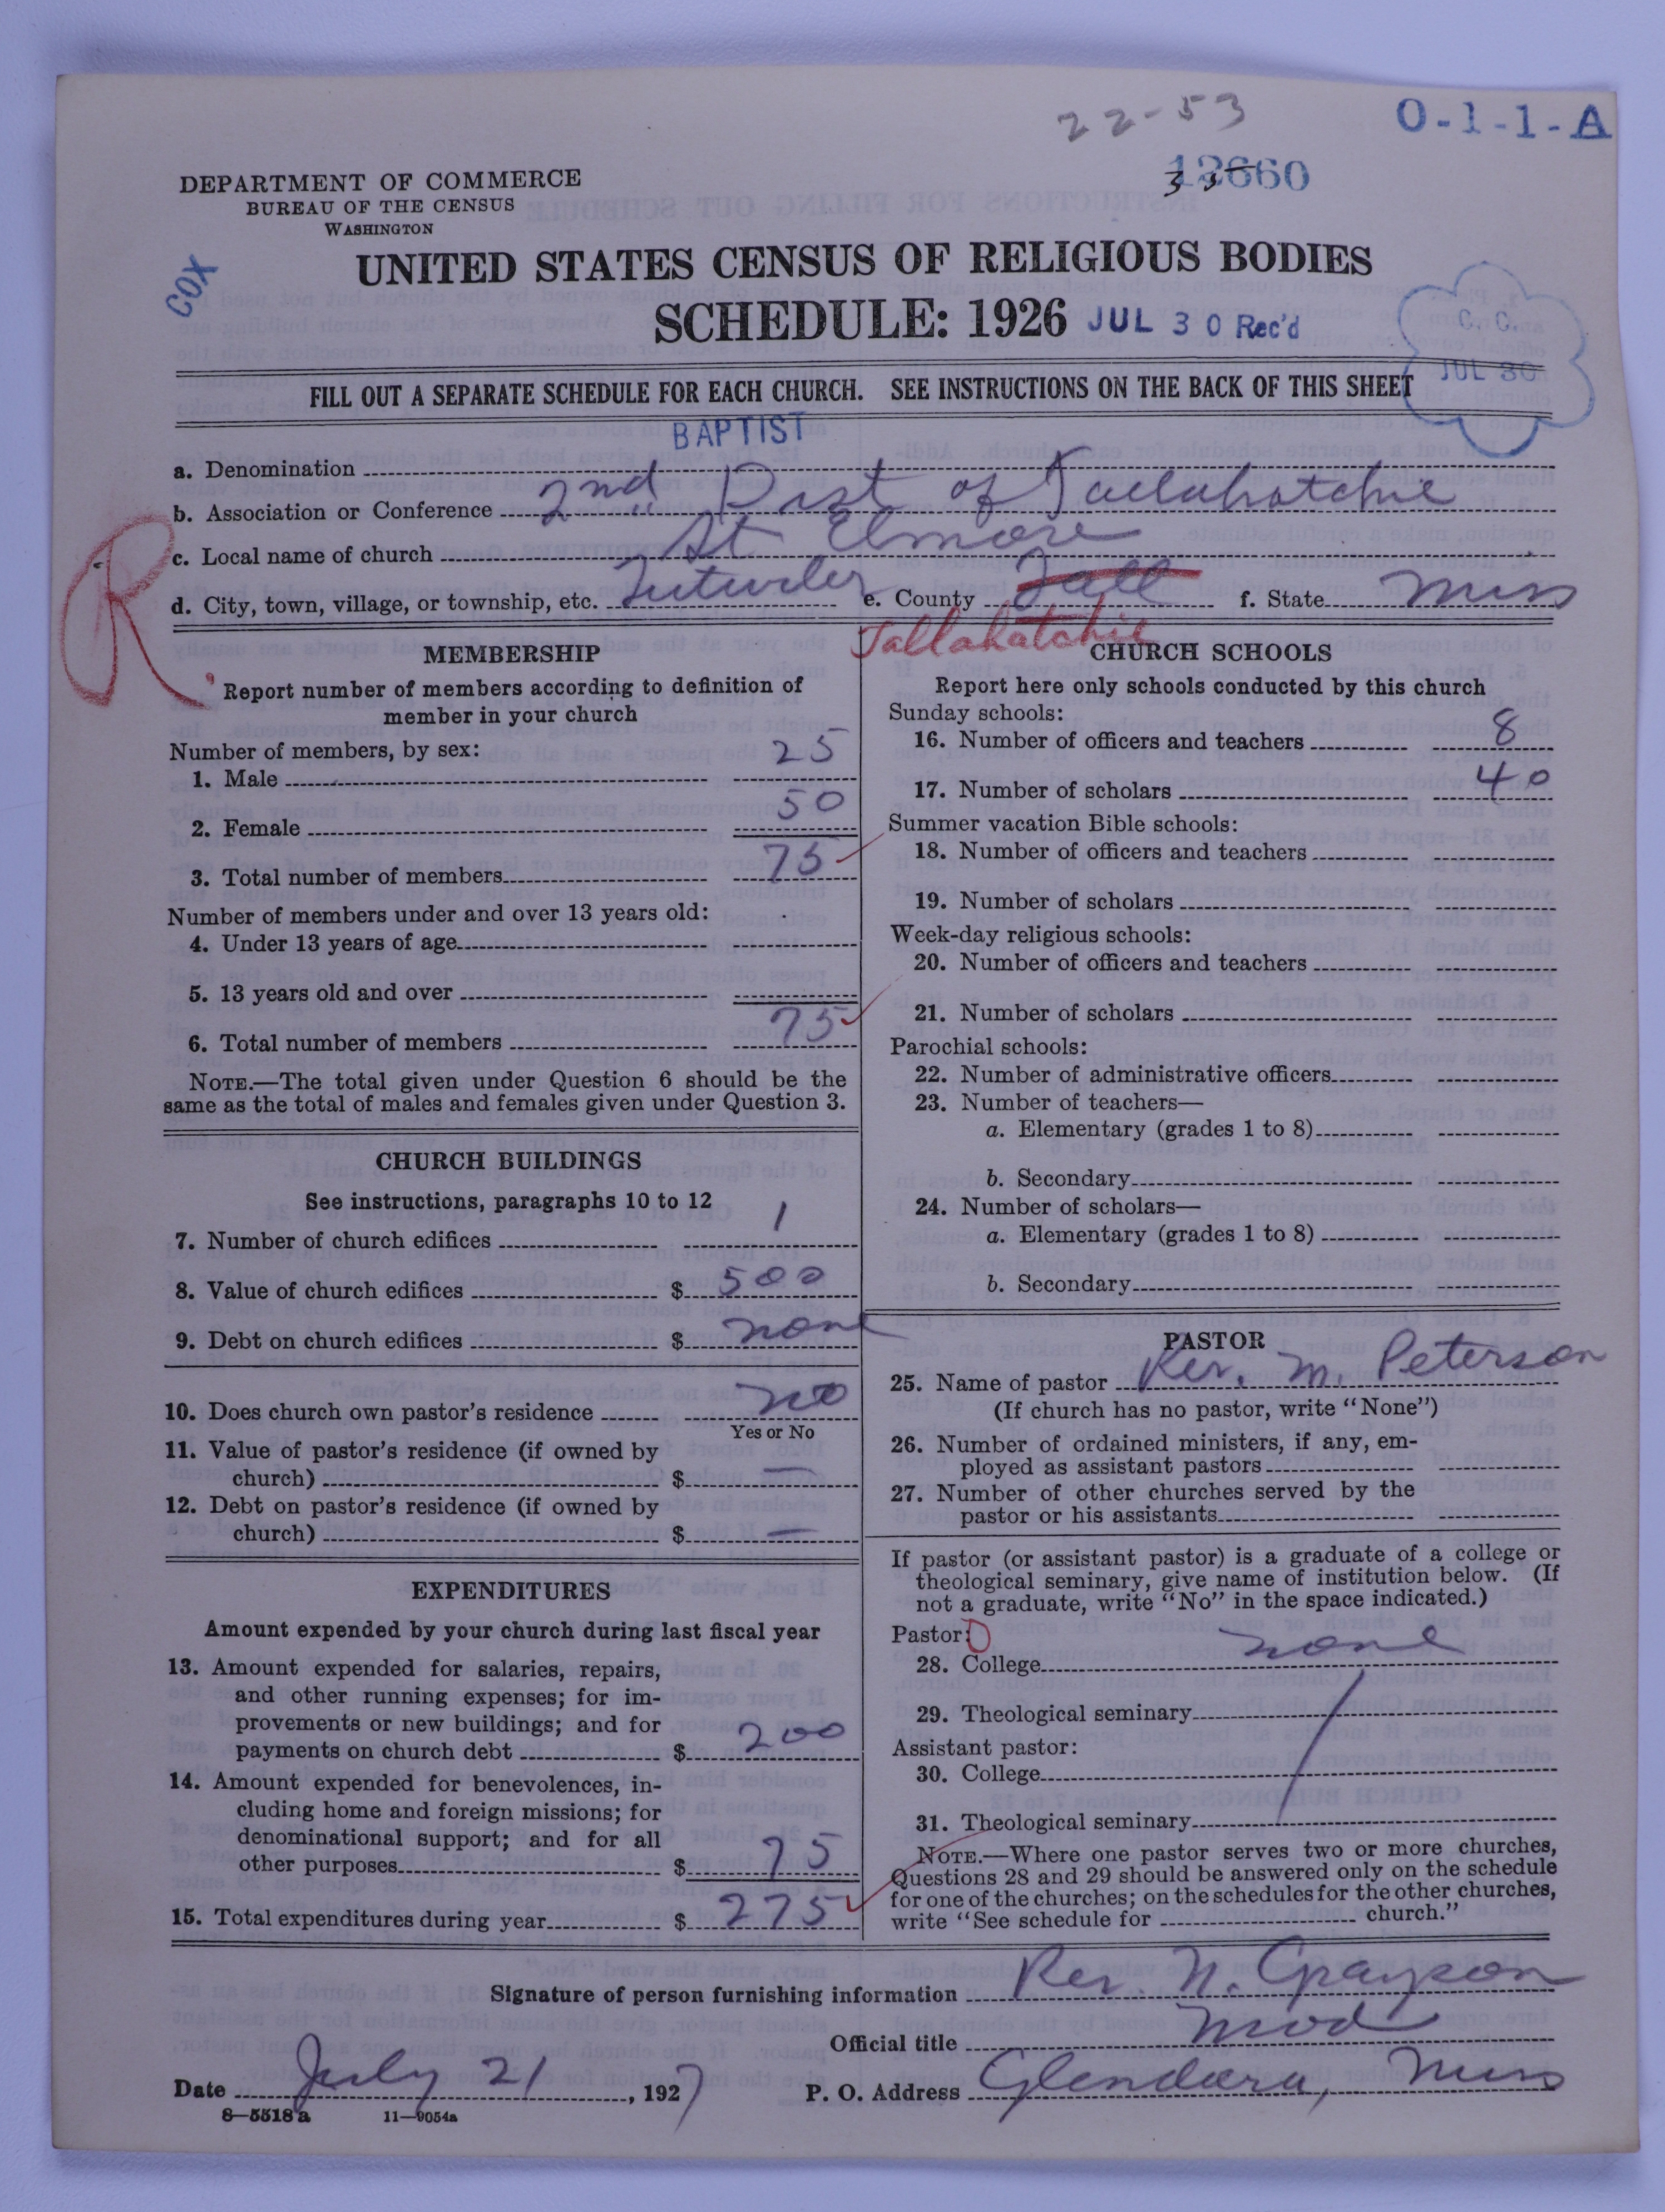 22-53
O-1-1-A
12660
33
DEPARTMENT OF COMMERCE
BUREAU OF THE CENSUS
WASHINGTON
COX
UNITED STATES CENSUS OF RELIGIOUS BODIES
SCHEDULE: 1926 JUL 30 Rec'd
C. C.
JUL 30
FILL OUT A SEPARATE SCHEDULE FOR EACH CHURCH. SEE INSTRUCTIONS ON THE BACK OF THIS SHEET
BAPTIST
a. Denomination
b. Association or Conference 2nd Dist of Tallahatchie
c. Local name of church St Elmore
d. City, town, village, or township, etc. Tutwiler e. County Tall f. State Miss
R
Tallahatchie
MEMBERSHIP
Report number of members according to definition of
member in your church
Number of members, by sex:
1. Male 25
2. Female 50
3. Total number of members 75
Number of members under and over 13 years old:
4. Under 13 years of age
5. 13 years old and over
6. Total number of members 75
NOTE.—The total given under Question 6 should be the
same as the total of males and females given under Question 3.
CHURCH BUILDINGS
See instructions, paragraphs 10 to 12
7. Number of church edifices 1
8. Value of church edifices $ 500
9. Debt on church edifices $ none
10. Does church own pastor's residence no
Yes or No
11. Value of pastor's residence (if owned by
church) $ —
12. Debt on pastor's residence (if owned by
church) $ —
EXPENDITURES
Amount expended by your church during last fiscal year
13. Amount expended for salaries, repairs,
and other running expenses; for im-
provements or new buildings; and for
payments on church debt $ 200
14. Amount expended for benevolences, in-
cluding home and foreign missions; for
denominational support; and for all
other purposes $ 75
15. Total expenditures during year $ 275
CHURCH SCHOOLS
Report here only schools conducted by this church
Sunday schools:
16. Number of officers and teachers 8
17. Number of scholars 40
Summer vacation Bible schools:
18. Number of officers and teachers
19. Number of scholars
Week-day religious schools:
20. Number of officers and teachers
21. Number of scholars
Parochial schools:
22. Number of administrative officers
23. Number of teachers—
a. Elementary (grades 1 to 8)
b. Secondary
24. Number of scholars—
a. Elementary (grades 1 to 8)
b. Secondary
PASTOR
25. Name of pastor Rev. M. Peterson
(If church has no pastor, write "None")
26. Number of ordained ministers, if any, em-
ployed as assistant pastors
27. Number of other churches served by the
pastor or his assistants
If pastor (or assistant pastor) is a graduate of a college or
theological seminary, give name of institution below. (If
not a graduate, write "No" in the space indicated.)
Pastor: 0
28. College none
29. Theological seminary
Assistant pastor:
30. College
31. Theological seminary
NOTE.—Where one pastor serves two or more churches,
Questions 28 and 29 should be answered only on the schedule
for one of the churches; on the schedules for the other churches,
write "See schedule for church."
Signature of person furnishing information Rev. N. Grayson
Official title Mod
Date July 21, 1927 P. O. Address Glendora, Miss
8—5518a 11—9054a